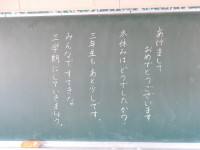 あけまして
おめでとうございます
冬休みはどうでしたか？
三年生も あと少しです。
みんなですてきな
三学期にしていきましょう。